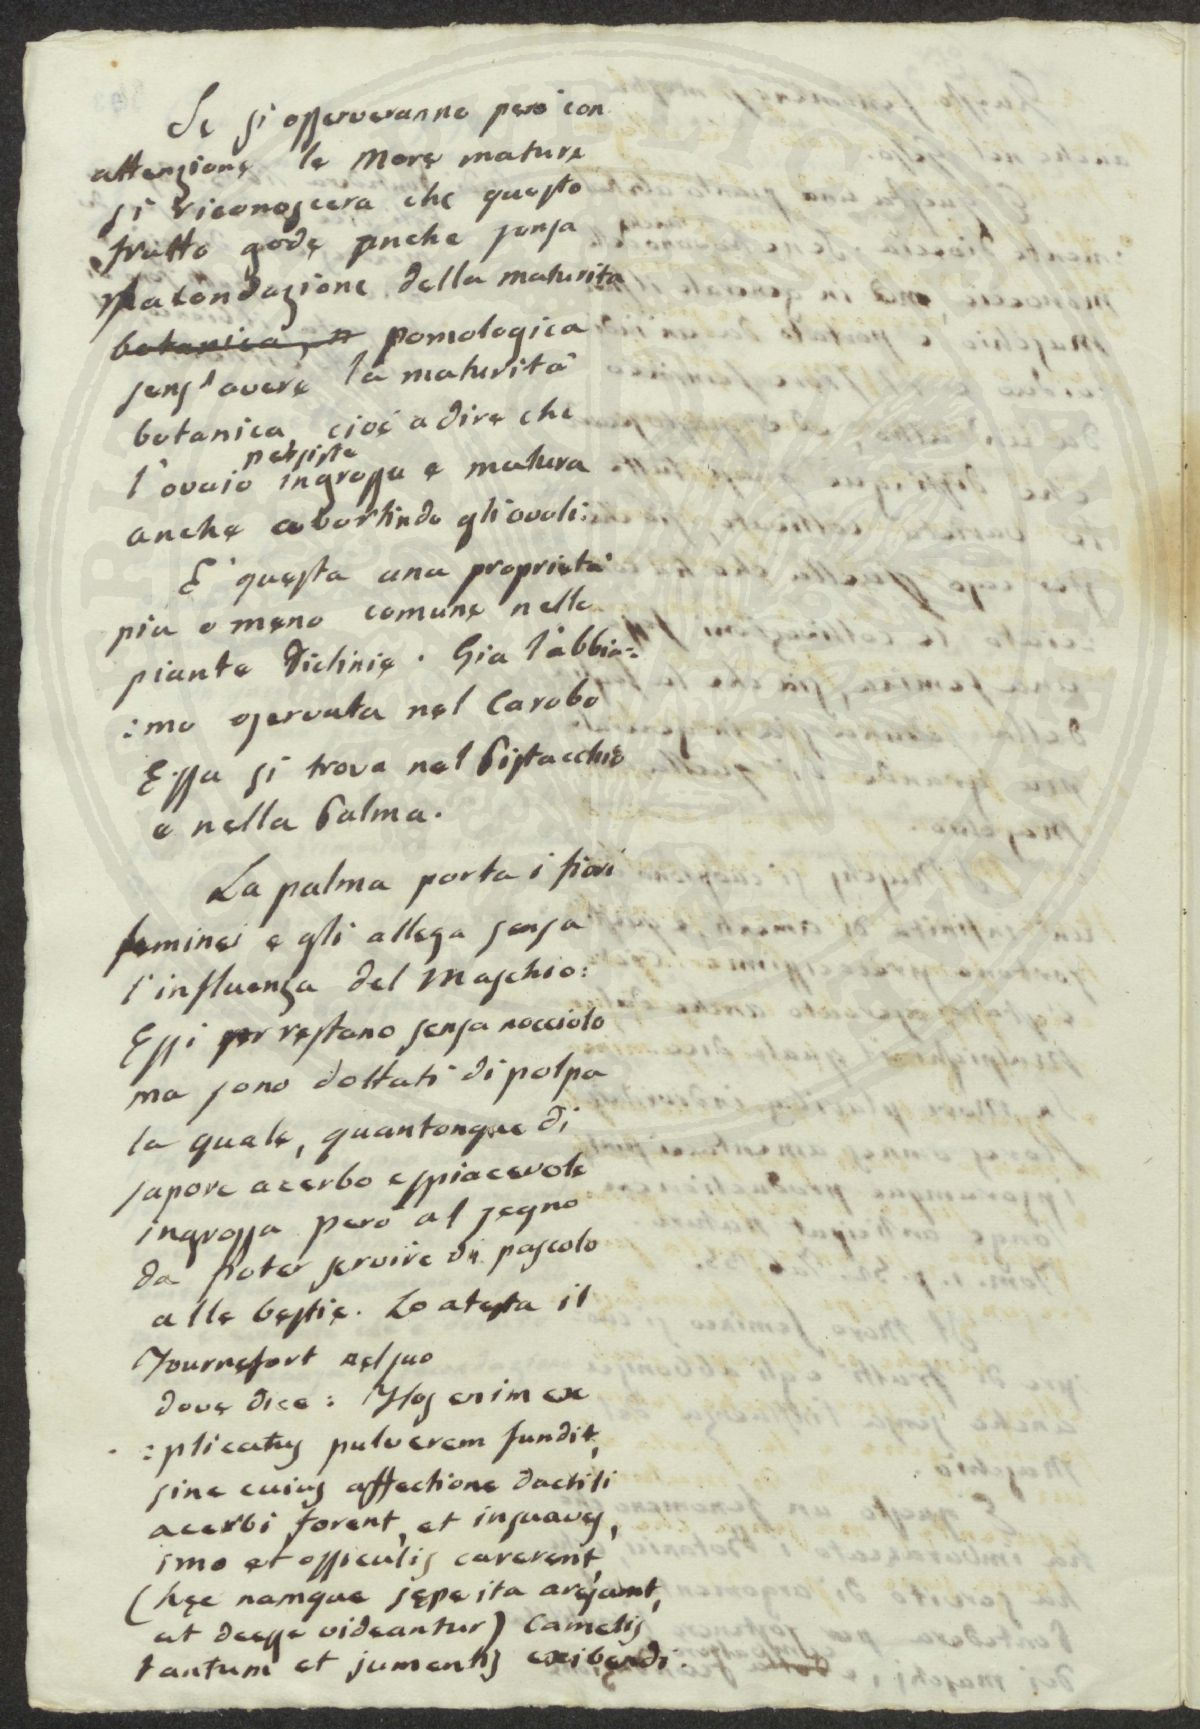 Se si osserveranno però con
attenzione le More mature
si riconoscera che questo
frutto gode anche sensa
fatondazione della maturita
botanica, pomologica
sens'avere la maturità
botanica, cioè a dire che
persiste
l'ovaio ingrossa e matura
anche abortindo gli ovoli:
E' questa una proprieta
più o meno comune nelle
piante diclinie. Gia l'abbia=
:mo oservata nel Carobo
Essa si trova nel Pistacchio
e nella Palma.
La palma porta i fiori
feminei e gli allega sensa
l'influenza del Maschio:
Essi restano sensa nocciolo
ma sono dottati di polpa
la quale, quantonque di
sapore acerbo e spiacevole
ingrossa però al segno
da poter servire di pascolo
alle bestie. Lo atesta il
Tournefort nel suo
dove dice: Flos enim ex
:plicatus pulverem fundit,
sine cuius affectione dactili
acerbi forent, et insuaves,
imo et ossiculis carerent,
(hęc namque sępe ita aresunt,
ut deesse videantur) Camelis
tantum et jumentis exibendi.